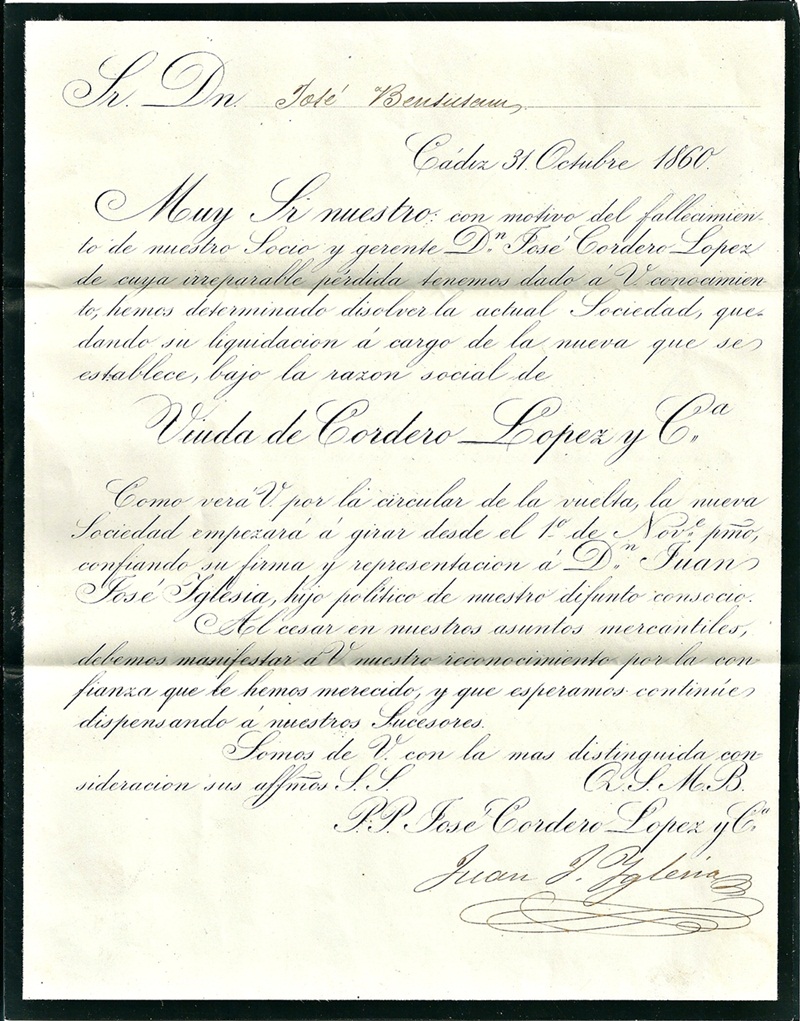 Sr. Dn. José Bensusan
Cádiz 31. Octubre 1860.
Muy Sr nuestro: con motivo del fallecimien-
to de nuestro Socio y gerente Dn. José Cordero Lopez
de cuya irreparable pérdida tenemos dado á V. conocimien-
to, hemos determinado disolver la actual Sociedad, que-
dando su liquidacion á cargo de la nueva que se
establece, bajo la razon social de
Viuda de Cordero Lopez y Ca.
Como verá V. por la circular de la vuelta, la nueva
Sociedad empezará á girar desde el 1º. de Nove. pmo,
confiando su firma y representacion á Dn. Juan
José Iglesia, hijo político de nuestro difunto consocio.
Al cesar en nuestros asuntos mercantiles,
debemos manifestar á V. nuestro reconocimiento por la con
fianza que le hemos merecido, y que esperamos continúe
dispensando á nuestros Sucesores.
Somos de V. con la mas distinguida con-
sideracion sus affmos S. S. Q. S. M. B.
P.P. José Cordero Lopez y Ca.
Juan J. Yglesia